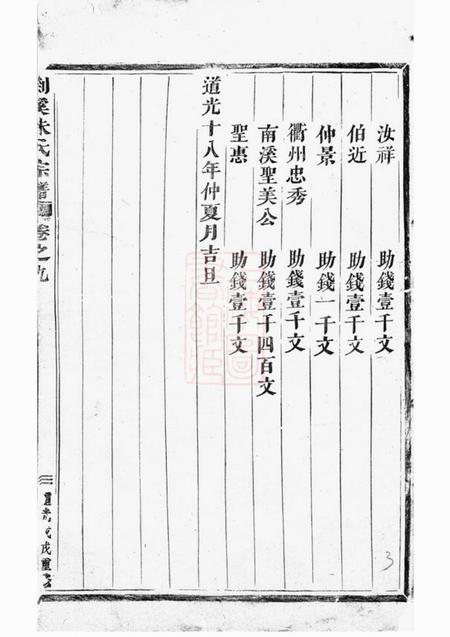 汝祥 助錢壹千文
伯近 助錢壹千文
仲景 助錢一千文
衢州忠秀 助錢壹千文
南溪聖美公 助錢壹千四百文
聖惠 助錢壹千文
道光十八年仲夏月吉旦
剡溪朱氏宗譜 卷之九
三
3